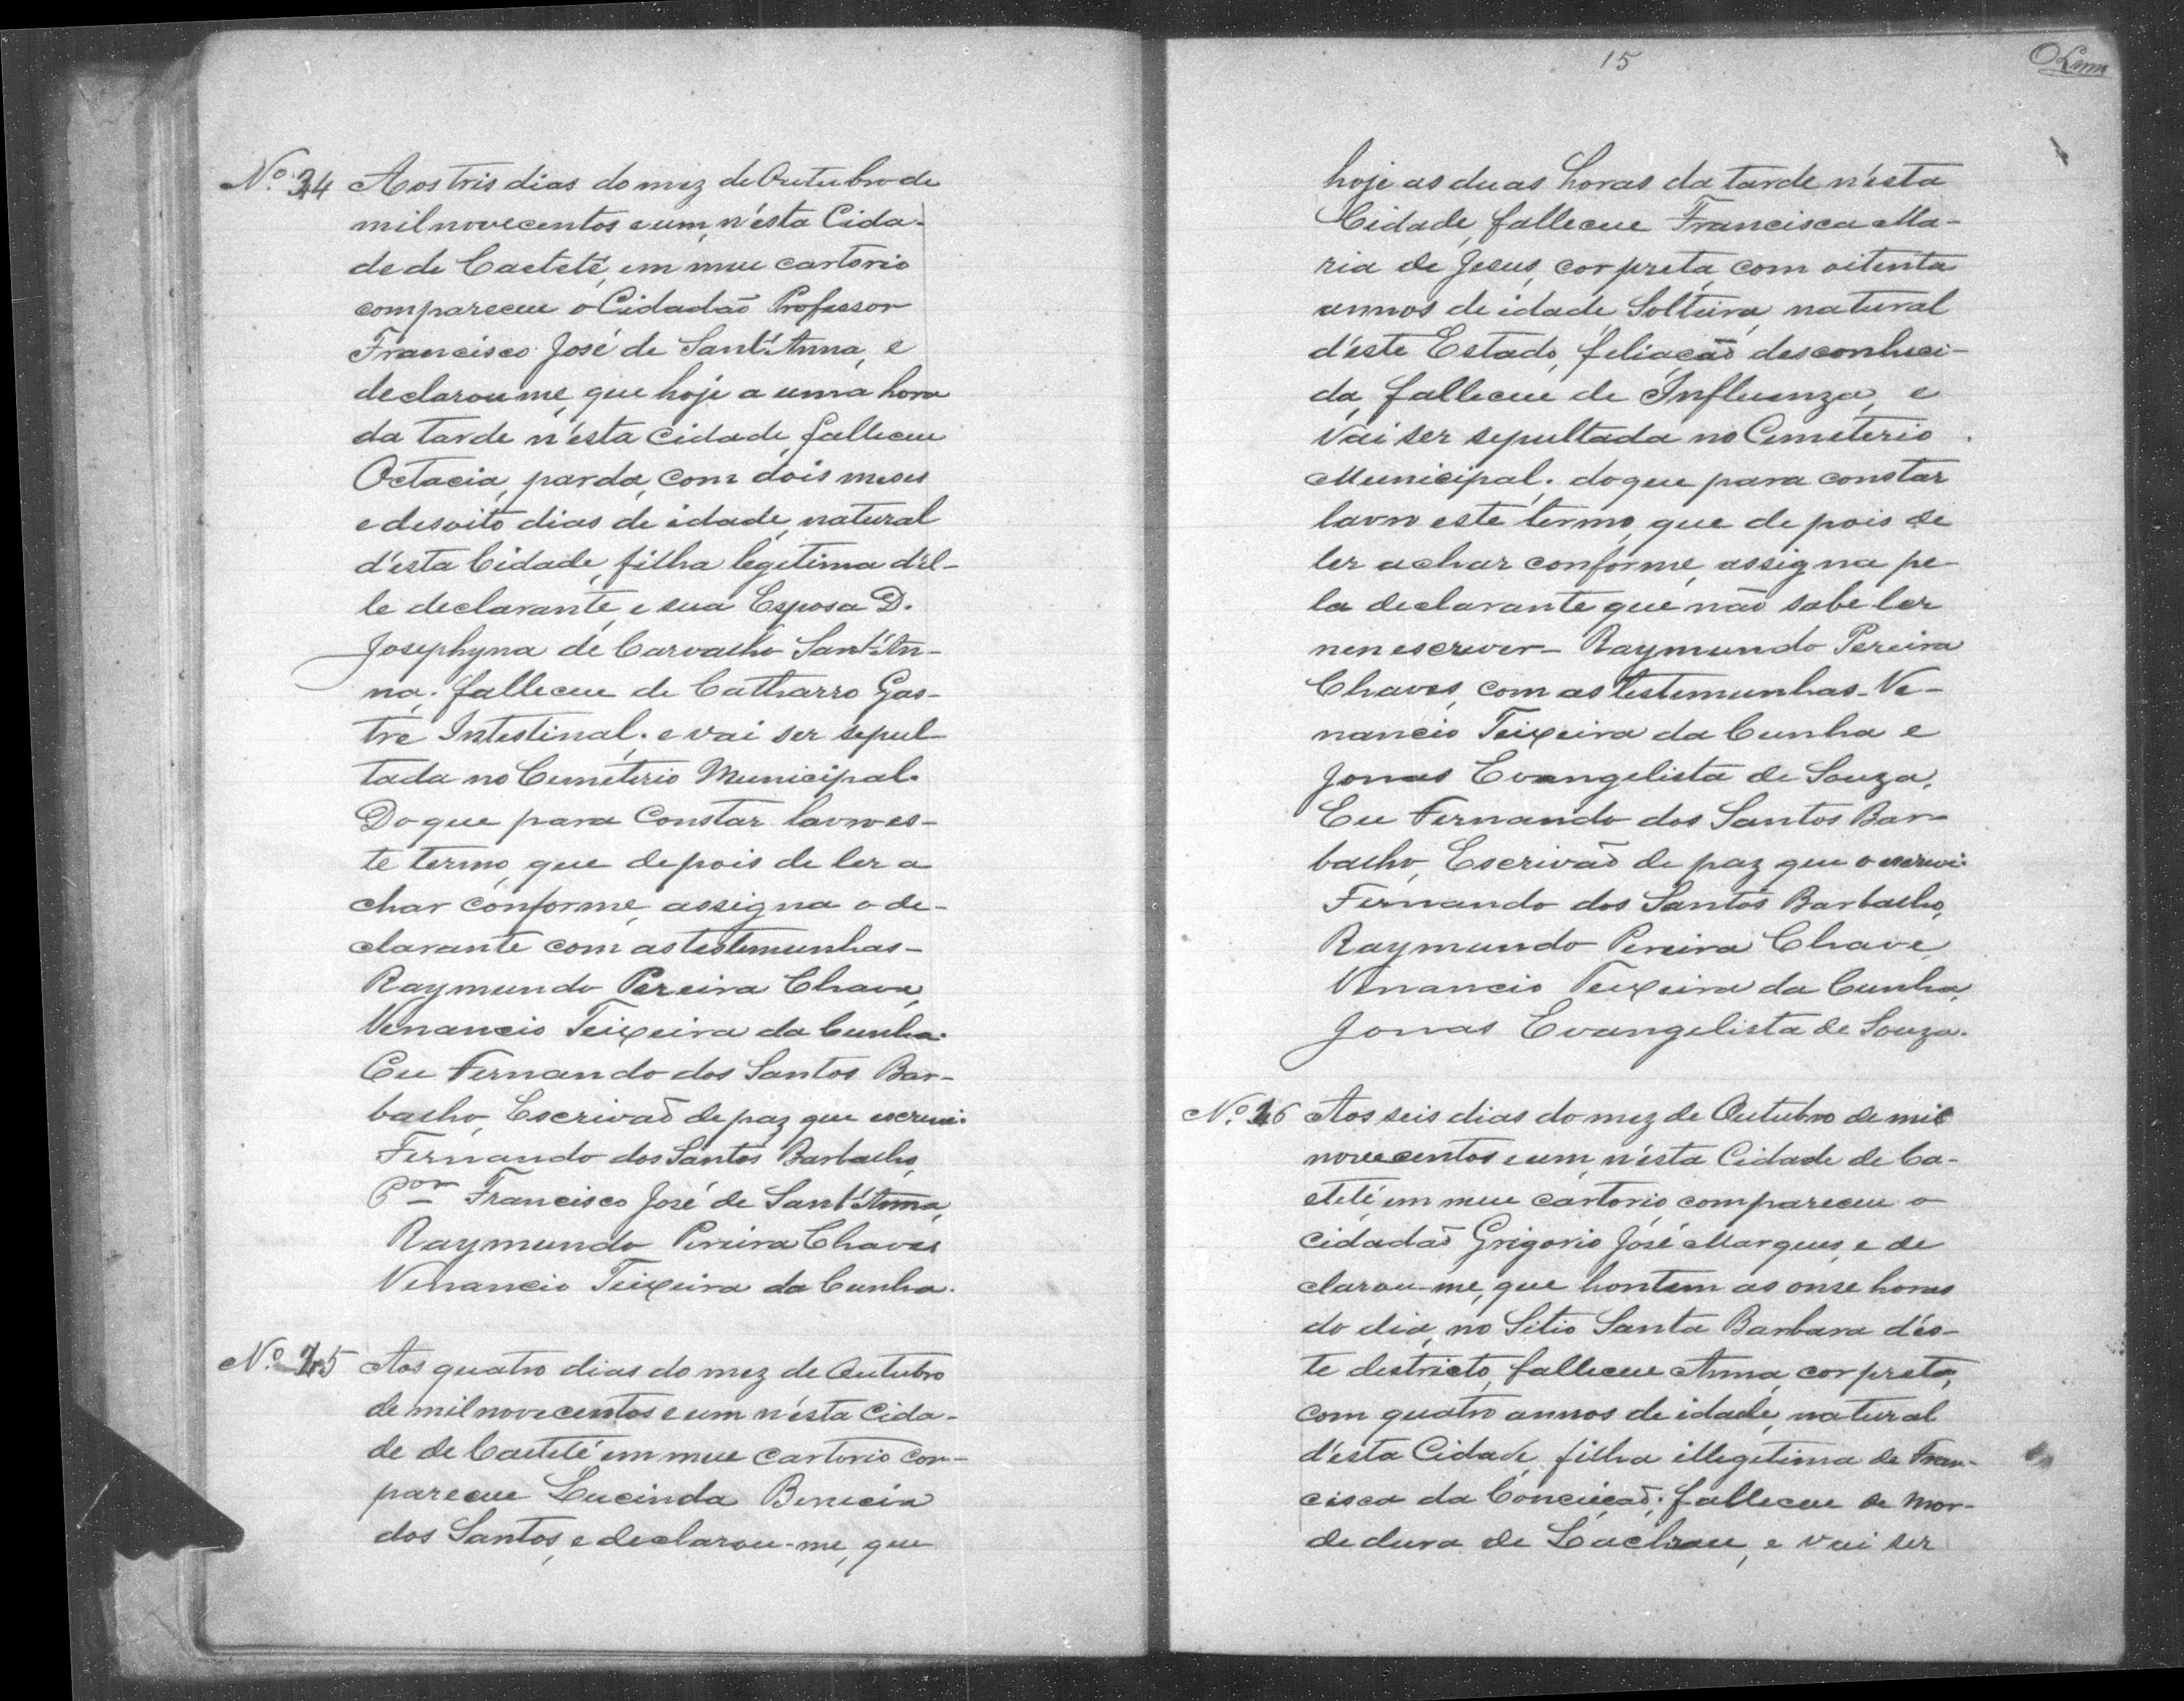 Nº 34 Aos tris dias do mez de Outubro de
mil novecentos e um, n'esta Cida-
de de Caeteté, em meu cartorio
compareceu o Cidadaõ Professor
Francisco José de Sant'Anna, e
declarou me, que hoje a uma hora
da tarde n'esta cidade, falleceu
Octacia, parda, com dois meses
e desoito dias de idade, natural
d'esta Cidade, filha legitima d'el-
le declarante, e sua Esposa D.
Josephyna de Carvalho Sant'An-
na; falleceu de Catharro Gas-
tre Intestinal. e vai ser sepul
tada no Cemeterio Municipal.
Do que para Constar lavro es-
te termo, que depois de ler a
char conforme, assigna o de-
clarante com as testemunhas-
Raymundo Pereira Chave,
Venancio Teixeira da Cunha.
Eu Fernando dos Santos Bar-
balho, Escrivaõ de paz que escrevi.
Fernando dos Santos Barbalho,
Pºr Francisco José de Sant'Anna,
Raymundo Pereira Chaves
Venancio Teixeira da Cunha.
Nº 35 Aos quatro dias do mez de Outubro
de mil novecentos e um n'esta Cida-
de de Caeteté em meu cartorio com-
pareceu Lucinda Benicia
dos Santos, e declarou-me, que
15
hoje as duas horas da tarde n'esta
Cidade, falleceu Francisca Ma-
ria de Jesus, cor preta, com oitenta
annos de idade, Solteira, natural
d'este Estado, feliaçaõ desconheci-
da, falleceu de Influenza, e
vai ser sepultada no Cemeterio
Municipal. do que para constar
lavro este termo, que de pois de
ler achar conforme, assigna pe-
la declarante que não sabe ler
nen escrever- Raymundo Pereira
Chaves, com as testemunhas- Ve-
nancio Teixeira da Cunha e
Jonas Evangelista de Souza.
Eu Fernando dos Santos Bar-
balho, Escrivaõ de paz que o escrevi.
Fernando dos Santos Barbalho,
Raymundo Pereira Chave,
Venancio Teixeira da Cunha,
Jonas Evangelista de Souza.
Nº 36 Aos seis dias do mez de Outubro de mil
novecentos e um, n'esta Cidade de Ca-
eteté em meu cartorio compareceu o
cidadaõ Grigorio José Marques, e de
clarou-me, que hontem as onse horas
do dia, no Sitio Santa Barbara d'es-
te destricto, falleceu Anna, cor preta,
com quatro annos de idade, natural
d'esta Cidade, filha illegitima de Fran-
cisca da Conceicaõ; falleceu de Mor-
dedura de Lachrau, e vai ser